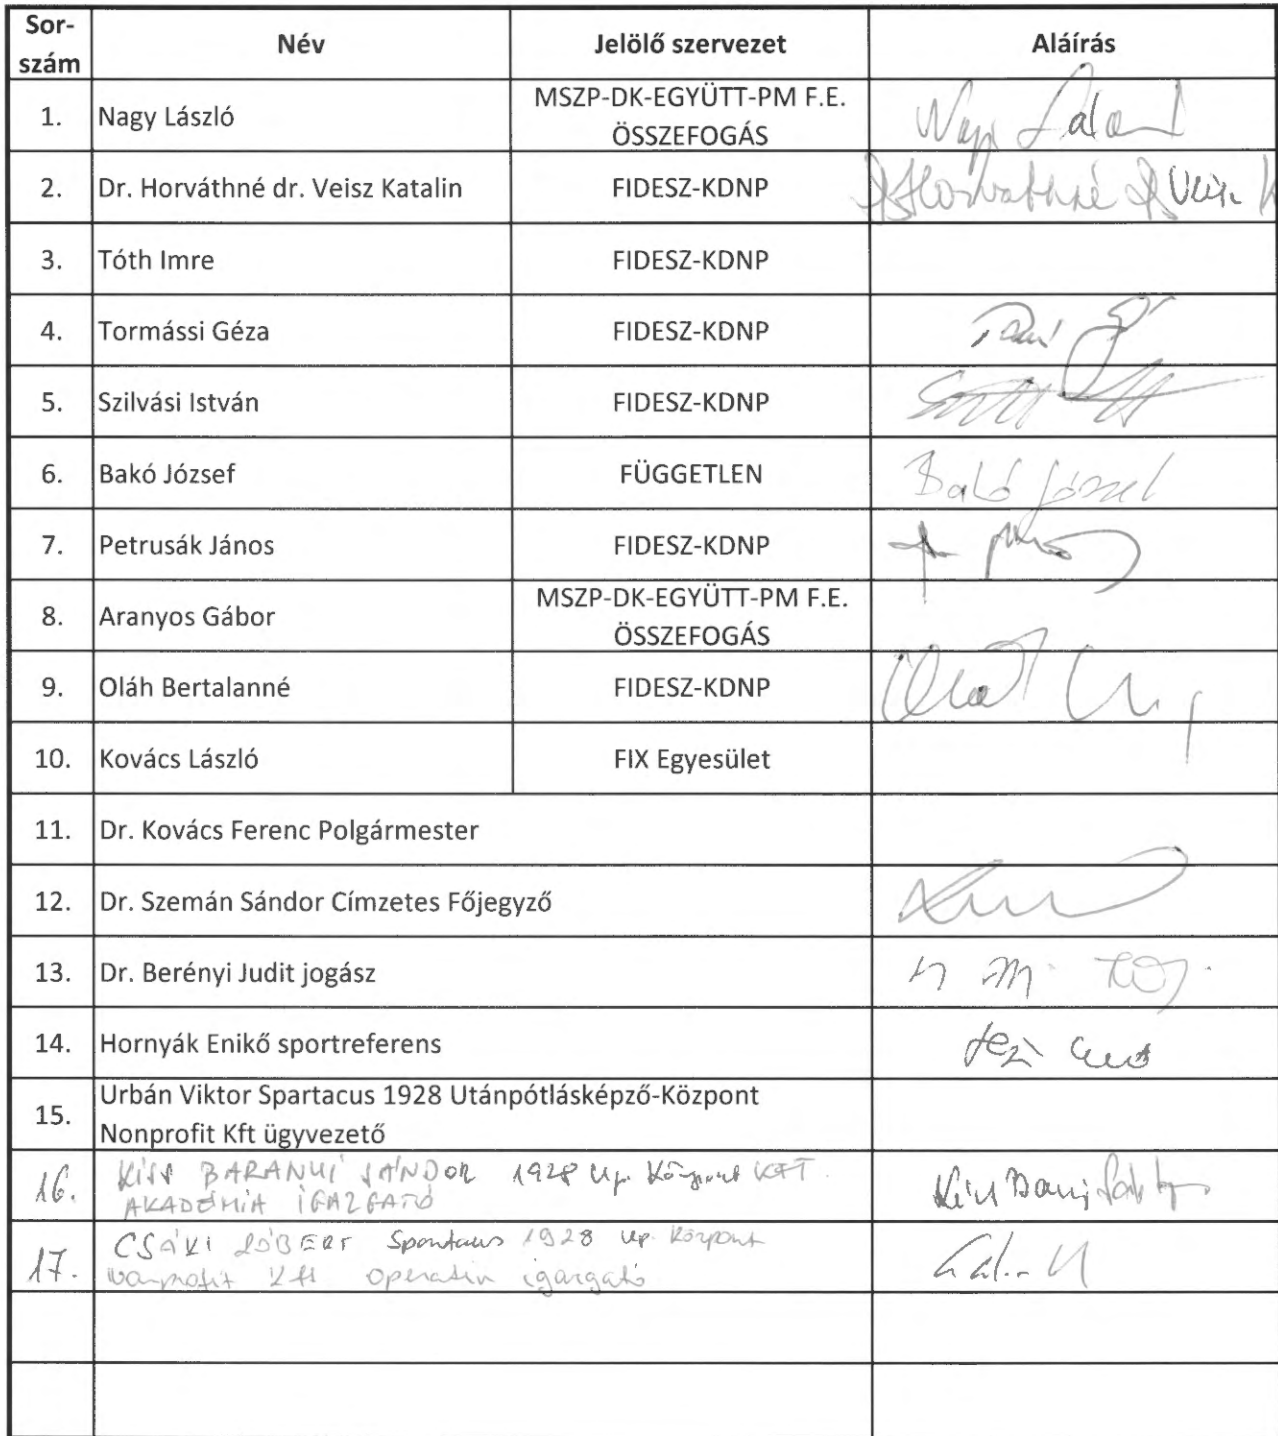 Sor-
szám
Név
Jelölő szervezet
Aláírás
1. Nagy László MSZP-DK-EGYÜTT-PM F.E.
ÖSSZEFOGÁS
2. Dr. Horváthné dr. Veisz Katalin FIDESZ-KDNP
3. Tóth Imre FIDESZ-KDNP
4. Tormássi Géza FIDESZ-KDNP
5. Szilvási István FIDESZ-KDNP
6. Bakó József FÜGGETLEN Bakó József
7. Petrusák János FIDESZ-KDNP
8. Aranyos Gábor MSZP-DK-EGYÜTT-PM F.E.
ÖSSZEFOGÁS
9. Oláh Bertalanné FIDESZ-KDNP
10. Kovács László FIX Egyesület
11. Dr. Kovács Ferenc Polgármester
12. Dr. Szemán Sándor Címzetes Főjegyző
13. Dr. Berényi Judit jogász
14. Hornyák Enikő sportreferens
15. Urbán Viktor Spartacus 1928 Utánpótlásképző-Központ
Nonprofit Kft ügyvezető
16. KISS BARANYI SÁNDOR 1928 Up. Központ KFT.
AKADÉMIA IGAZGATÓ
17. CSÁKI RÓBERT Spartacus 1928 up. Központ
Nonprofit Kft operatív igazgató